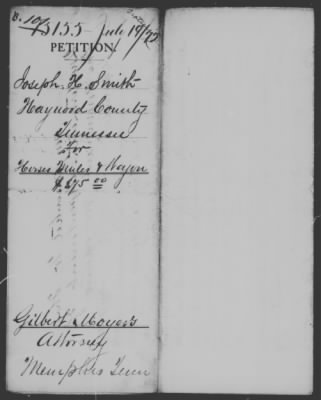 155 July 19/73
PETITION.
Joseph H. Smith
Haywood County
Tennessee
For
Horses Mules & Wagon
$ 875 00
Gilbert Moyers
Attorney
Memphis Tenn